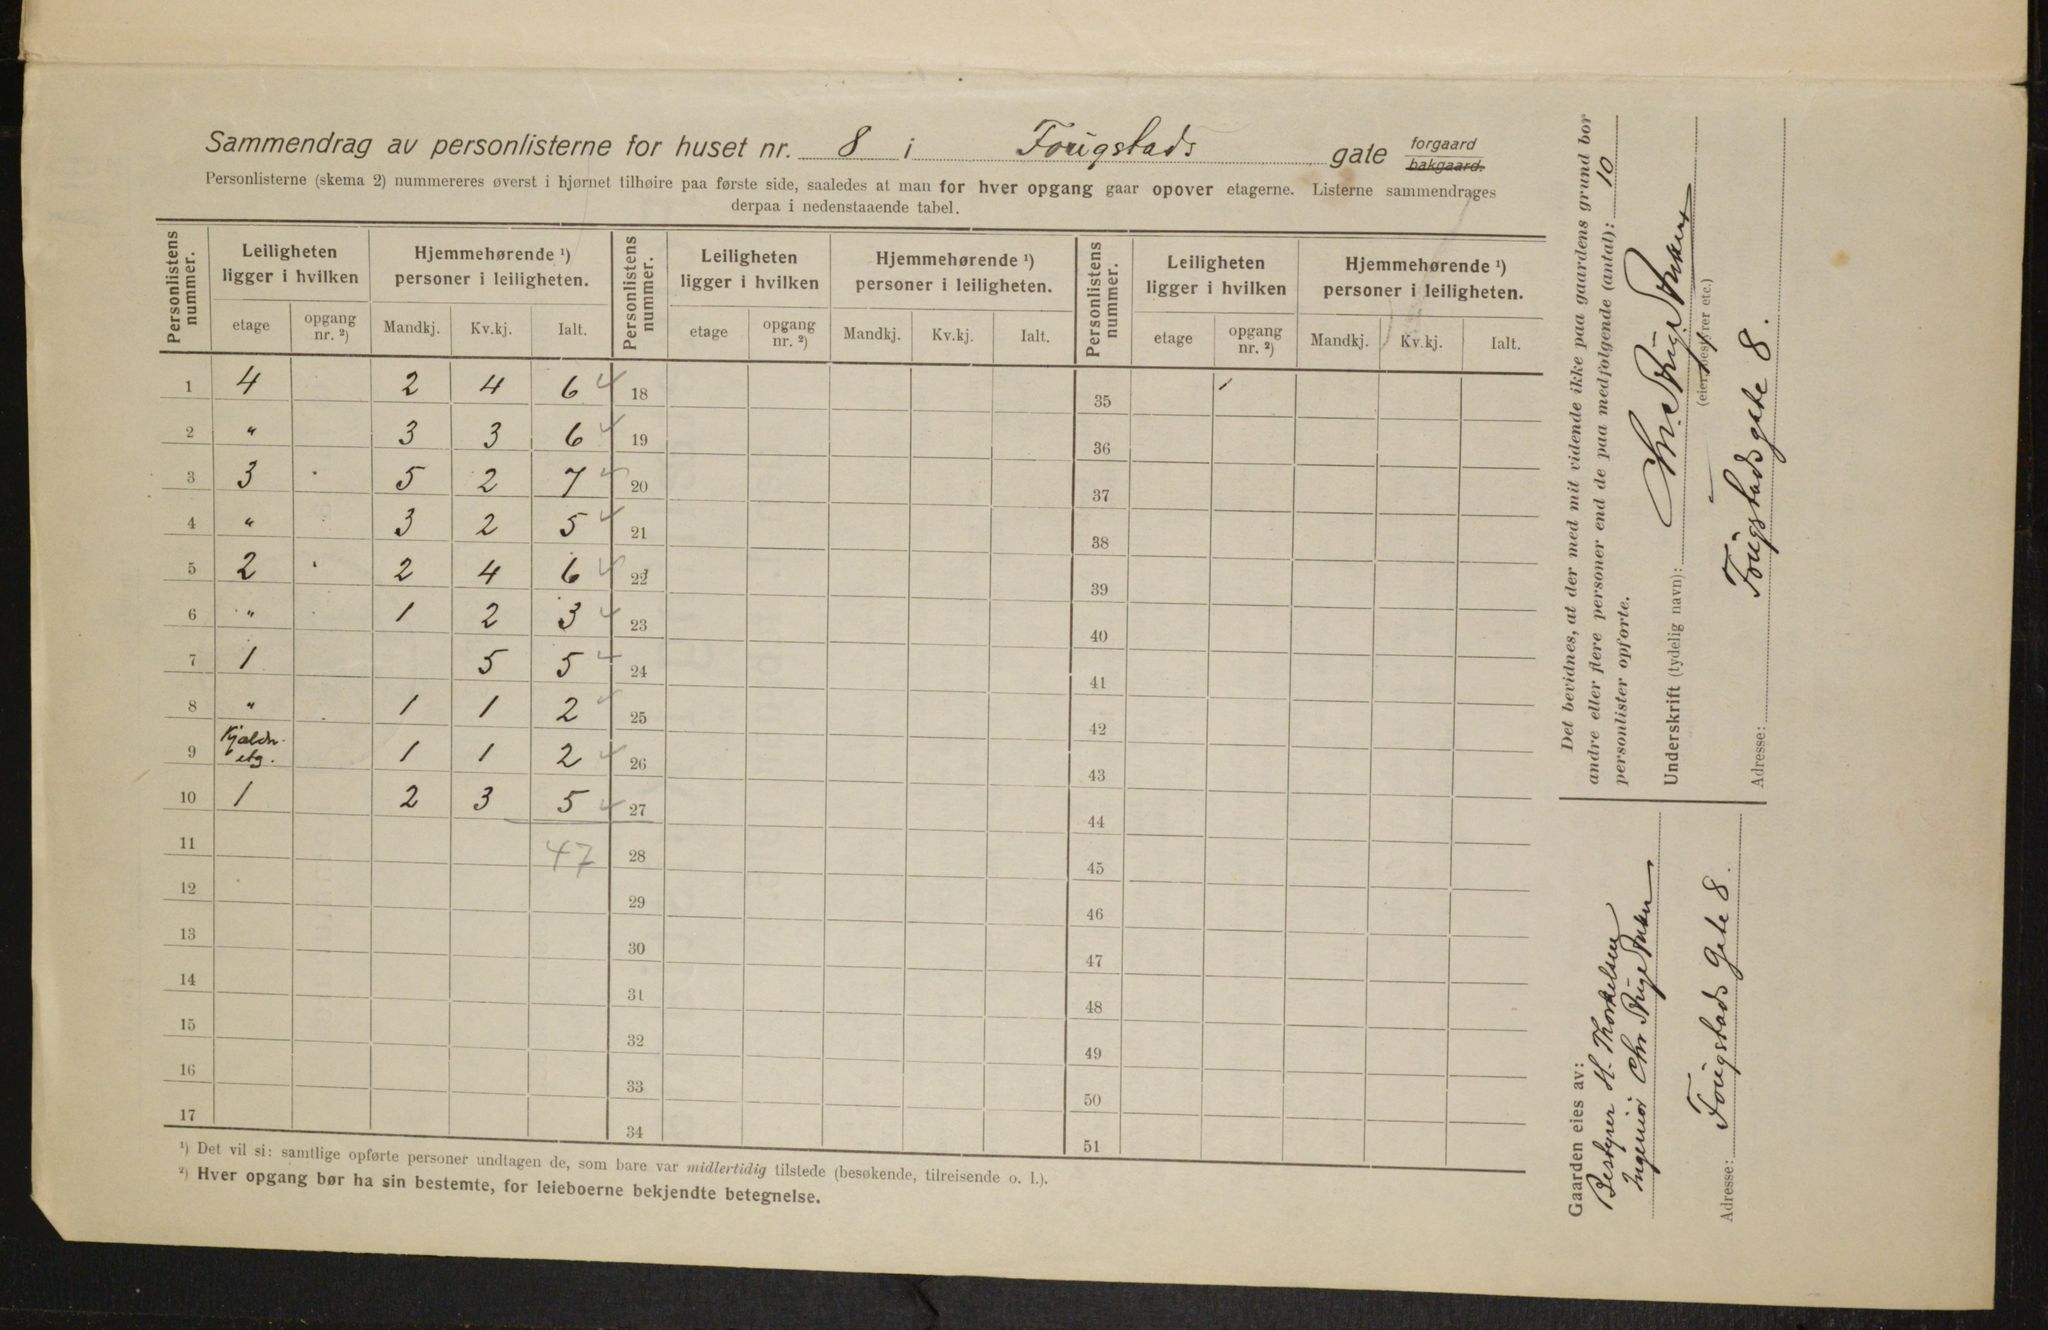 Sammendrag av personlisterne for huset nr. 8 i Fougstads gate forgaard bakgaard.
Personlisterne (skema 2) nummereres øverst i hjørnet tilhøire paa første side, saaledes at man for hver opgang gaar opover etagerne. Listerne sammendrages
derpaa i nedenstaaende tabel.
Personlistens nummer. Leiligheten ligger i hvilken Hjemmehørende ¹) personer i leiligheten. Personlistens nummer. Leiligheten ligger i hvilken Hjemmehørende ¹) personer i leiligheten. Personlistens nummer. Leiligheten ligger i hvilken Hjemmehørende ¹) personer i leiligheten.
etage opgang nr. ²) Mandkj. Kv.kj. Ialt. etage opgang nr. ²) Mandkj. Kv.kj. Ialt. etage opgang nr. ²) Mandkj. Kv.kj. Ialt.
1 4 2 4 6 18 35
2 " 3 3 6 19 36
3 3 5 2 7 20 37
4 " 3 2 5 21 38
5 2 2 4 6 22 39
6 " 1 2 3 23 40
7 1 5 5 24 41
8 " 1 1 2 25 42
9 Kjælder etg. 1 1 2 26 43
10 1 2 3 5 27 44
11 47 28 45
12 29 46
13 30 47
14 31 48
15 32 49
16 33 50
17 34 51
¹) Det vil si: samtlige opførte personer undtagen de, som bare var midlertidig tilstede (besøkende, tilreisende o. l.).
²) Hver opgang bør ha sin bestemte, for leieboerne bekjendte betegnelse.
Det bevidnes, at der med mit vidende ikke paa gaardens grund bor
andre eller flere personer end de paa medfolgende (antal): 10
personlister opførte.
Underskrift (tydelig navn):
(eier, bestyrer etc.)
Adresse: Fougstads gate 8.
Gaarden eies av:
Bestyrer H. Thorkelsen
Ingeniør Chr
Adresse: Fougstads Gate 8.